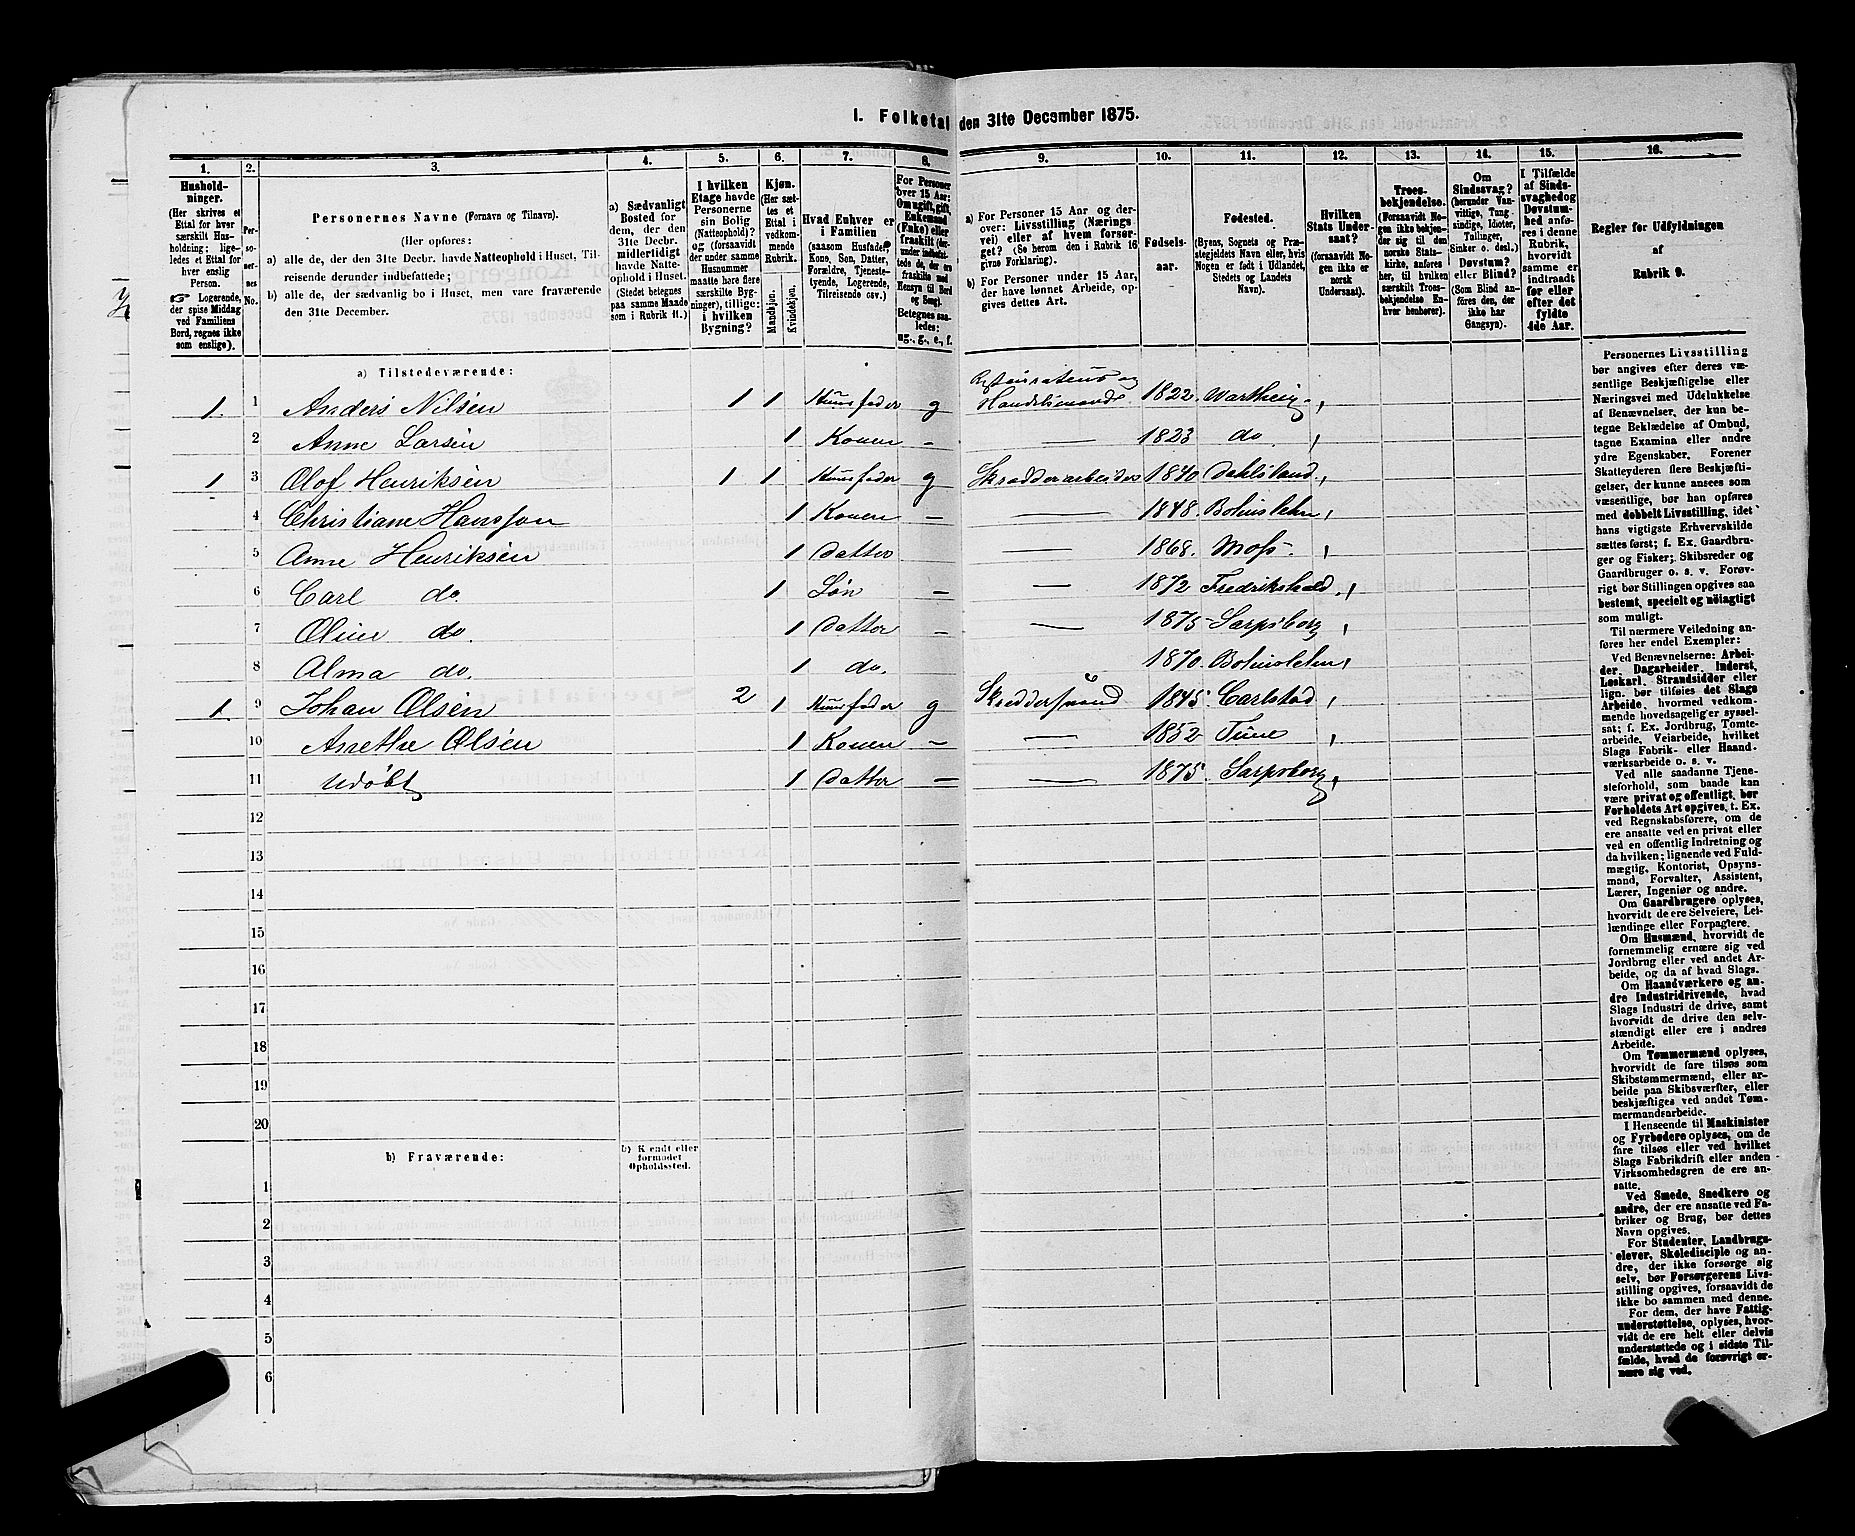 1. Folketal den 31te December 1875.
1. 2. 3. 4. 5. 6. 7. 8. 9. 10. 11. 12. 13. 14. 15. 16.
Husholdninger.
(Her skrives et
Ettal for hver
særskilt Husholdning;
ligeledes et Ettal for
hver enslig
Person.
☞ Logerende,
der spise Middag
ved Familiens
Bord, regnes ikke
som enslige).
Personernes No.
Personernes Navne (Fornavn og Tilnavn).
(Her opføres:
a) alle de, der den 31te Decbr. havde Natteophold i Huset, Tilreisende
derunder indbefattede;
b) alle de, der sædvanlig bo i Huset, men vare fraværende
den 31te December.
a) Sædvanligt
Bosted for
dem, der den
31te Decbr.
midlertidigt
havde Natteophold
i Huset.
(Stedet betegnes
paa samme Maade
som i Rubrik 11.)
I hvilken
Etage havde
Personerne
sin Bolig
(Natteophold)?
og (forsaavidt
der under samme
Husnummer
maatte høre flere
særskilte Bygninger),
tillige:
i hvilken
Bygning?
Kjøn.
(Her sættes
et
Ettal i
vedkommende
Rubrik.
Mandkjøn.
Kvindekjøn.
Hvad Enhver er
i Familien
(saasom Husfader,
Kone, Son, Datter,
Forældre, Tjenestetyende,
Logerende,
Tilreisende osv.)
For Personer
over 15 Aar:
Om ugift, gift,
Enkemand
(Enke) eller
fraskilt
Betegnes saaledes:
ug., g., e., f.
a) For Personer 15 Aar og derover:
Livsstilling (Næringsvei)
eller af hvem forsørget?
(Se herom den i Rubrik 16
givne Forklaring).
b) For Personer under 15 Aar,
der have lønnet Arbeide, opgives
dettes Art.
Fødselsaar.
Fødested.
(Byens, Sognets og Præstegjeldets
Navn eller, hvis
Nogen er født i Udlandet,
Stedets og Landets
Navn).
Hvilken
Stats Undersaat?
(forsaavidt Nogen
ikke er
norsk
Undersaat).
Troesbekjendelse.
(Forsaavidt Nogen
ikke bekjender
sig til den
norske Statskirke,
anføres
her, til hvilken
særskilt Troesbekjendelse
Enhver
henhører).
Om
Sindssvag?
(herunder Vanvittige,
Tungsindige,
Idioter,
Tullinger,
Sinker o. desl.)
Døvstum?
eller Blind?
(Som Blind anføres
den, der
ikke har
Gangsyn).
I Tilfælde
af Sindssvaghed
og
Døvstumhed
anføres
i denne
Rubrik,
hvorvidt
samme er
indtraadt
før eller
efter det
fyldte
4de Aar.
Regler for Udfyldningen
af
Rubrik 9.
a) Tilstedeværende:
1. 1 Anders Nilsen 1 1 Huusfader g Restaurateur og Handelsmand 1822 Wartheig
2 Anne Larsen 1 Konen – — 1823 do
1 3 Olof Henriksen 1 1 Huusfader g Skrædderarbeider 1840 Dahlsland
4 Christiane Hansson 1 Konen – — 1848. Bohuslehn
5 Anne Henriksen 1 Datter — 1868. Moss.
6 Carl do. 1 Søn – — 1872 Fredrikshald
7 Oline do. 1 Datter – — 1875 Sarpsborg
8 Alma do. 1 do. — 1870 Bohuslehn
1 9 Johan Olsen 2 1 Huusfader g Skreddersvend 1845 Carlstad
10 Anethe Olsen 1 Konen – — 1852 Tune
11 Udøbt 1 Datter – — 1875. Sarpsborg
12
13
14
15
16
17
18
19
20
b) Fraværende:
b) Kjendt eller
formodet
Opholdssted.
1
2
3
4
5
6
Personernes Livsstilling
bør angives efter deres væsentlige
Beskjæftigelse eller
Næringsvei med Udelukkelse
af Benævnelser, der kun betegne
Beklædelse af Ombud,
tagne Examina eller andre
ydre Egenskaber. Forener
Skatteyderen flere Beskjæftigelser,
der kunne ansees som
væsentlige, bør han opføres
med dobbelt Livsstilling, idet
hans vigtigste Erhvervskilde
sættes først; f. Ex. Gaardbruger
og Fisker; Skibsreder og
Gaardbruger o. s. v. Forøvrigt
bør Stillingen opgives saa
bestemt, specielt og nøiagtigt
som muligt.
Til nærmere Veiledning anføres
her endel Exempler:
Ved Benævnelserne: Arbeider,
Dagarbeider, Inderst,
Løskarl, Strandsidder eller
lign. bør tilføies det Slags
Arbeide, hvormed vedkommende
hovedsagelig er sysselsat;
f. Ex. Jordbrug, Tomtearbeide,
Veiarbeide, hvilket
Slags Fabrik- eller Haandværksarbeide
o. s. v.
Ved alle saadanne Tjenesteforhold,
som baade kan
være privat og offentligt, bør
Forholdets Art opgives, t. Ex.
ved Regnskabsførere, om de
ere ansatte ved en privat eller
ved en offentlig Indretning og
da hvilken; lignende ved Fuldmægtig,
Kontorist, Opsynsmand,
Forvalter, Assistent,
Lærer, Ingeniør og andre.
Om Gaardbrugere oplyses,
hvorvidt de ere Selveiere, Leilændinge
eller Forpagtere.
Om Husmænd, hvorvidt de
fornemmelig ernære sig ved
Jordbrug eller ved andet Arbeide,
og da af hvad Slags.
Om Haandværkere og andre
Industridrivende, hvad
Slags Industri de drive, samt
hvorvidt de drive den selvstændigt
eller ere i andres
Arbeide.
Om Tømmermænd oplyses,
hvorvidt de fare tilsøs som
Skibstømmermænd, eller arbeide
paa Skibsværfter, eller
beskjæftiges ved andet Tømmermandsarbeide.
I Henseende til Maskinister
og Fyrbødere oplyses, om de
fare tilsøs eller ved hvilket
Slags Fabrikdrift eller anden
Virksomhedsgren de ere ansatte.
Ved Smede, Snedkere og
andre, der ere ansatte ved Fabriker
og Brug, bør dettes
Navn opgives.
For Studenter, Landbrugselever,
Skoledisciple og andre,
der ikke forsørge sig
selv, bør Forsørgerens Livsstilling
opgives, forsaavidt de
ikke bo sammen med denne.
For dem, der have Fattigunderstøttelse,
oplyses, hvorvidt
de ere helt eller delvis
understøttede og i sidste Tilfælde,
hvad de forøvrigt ernære
sig ved.